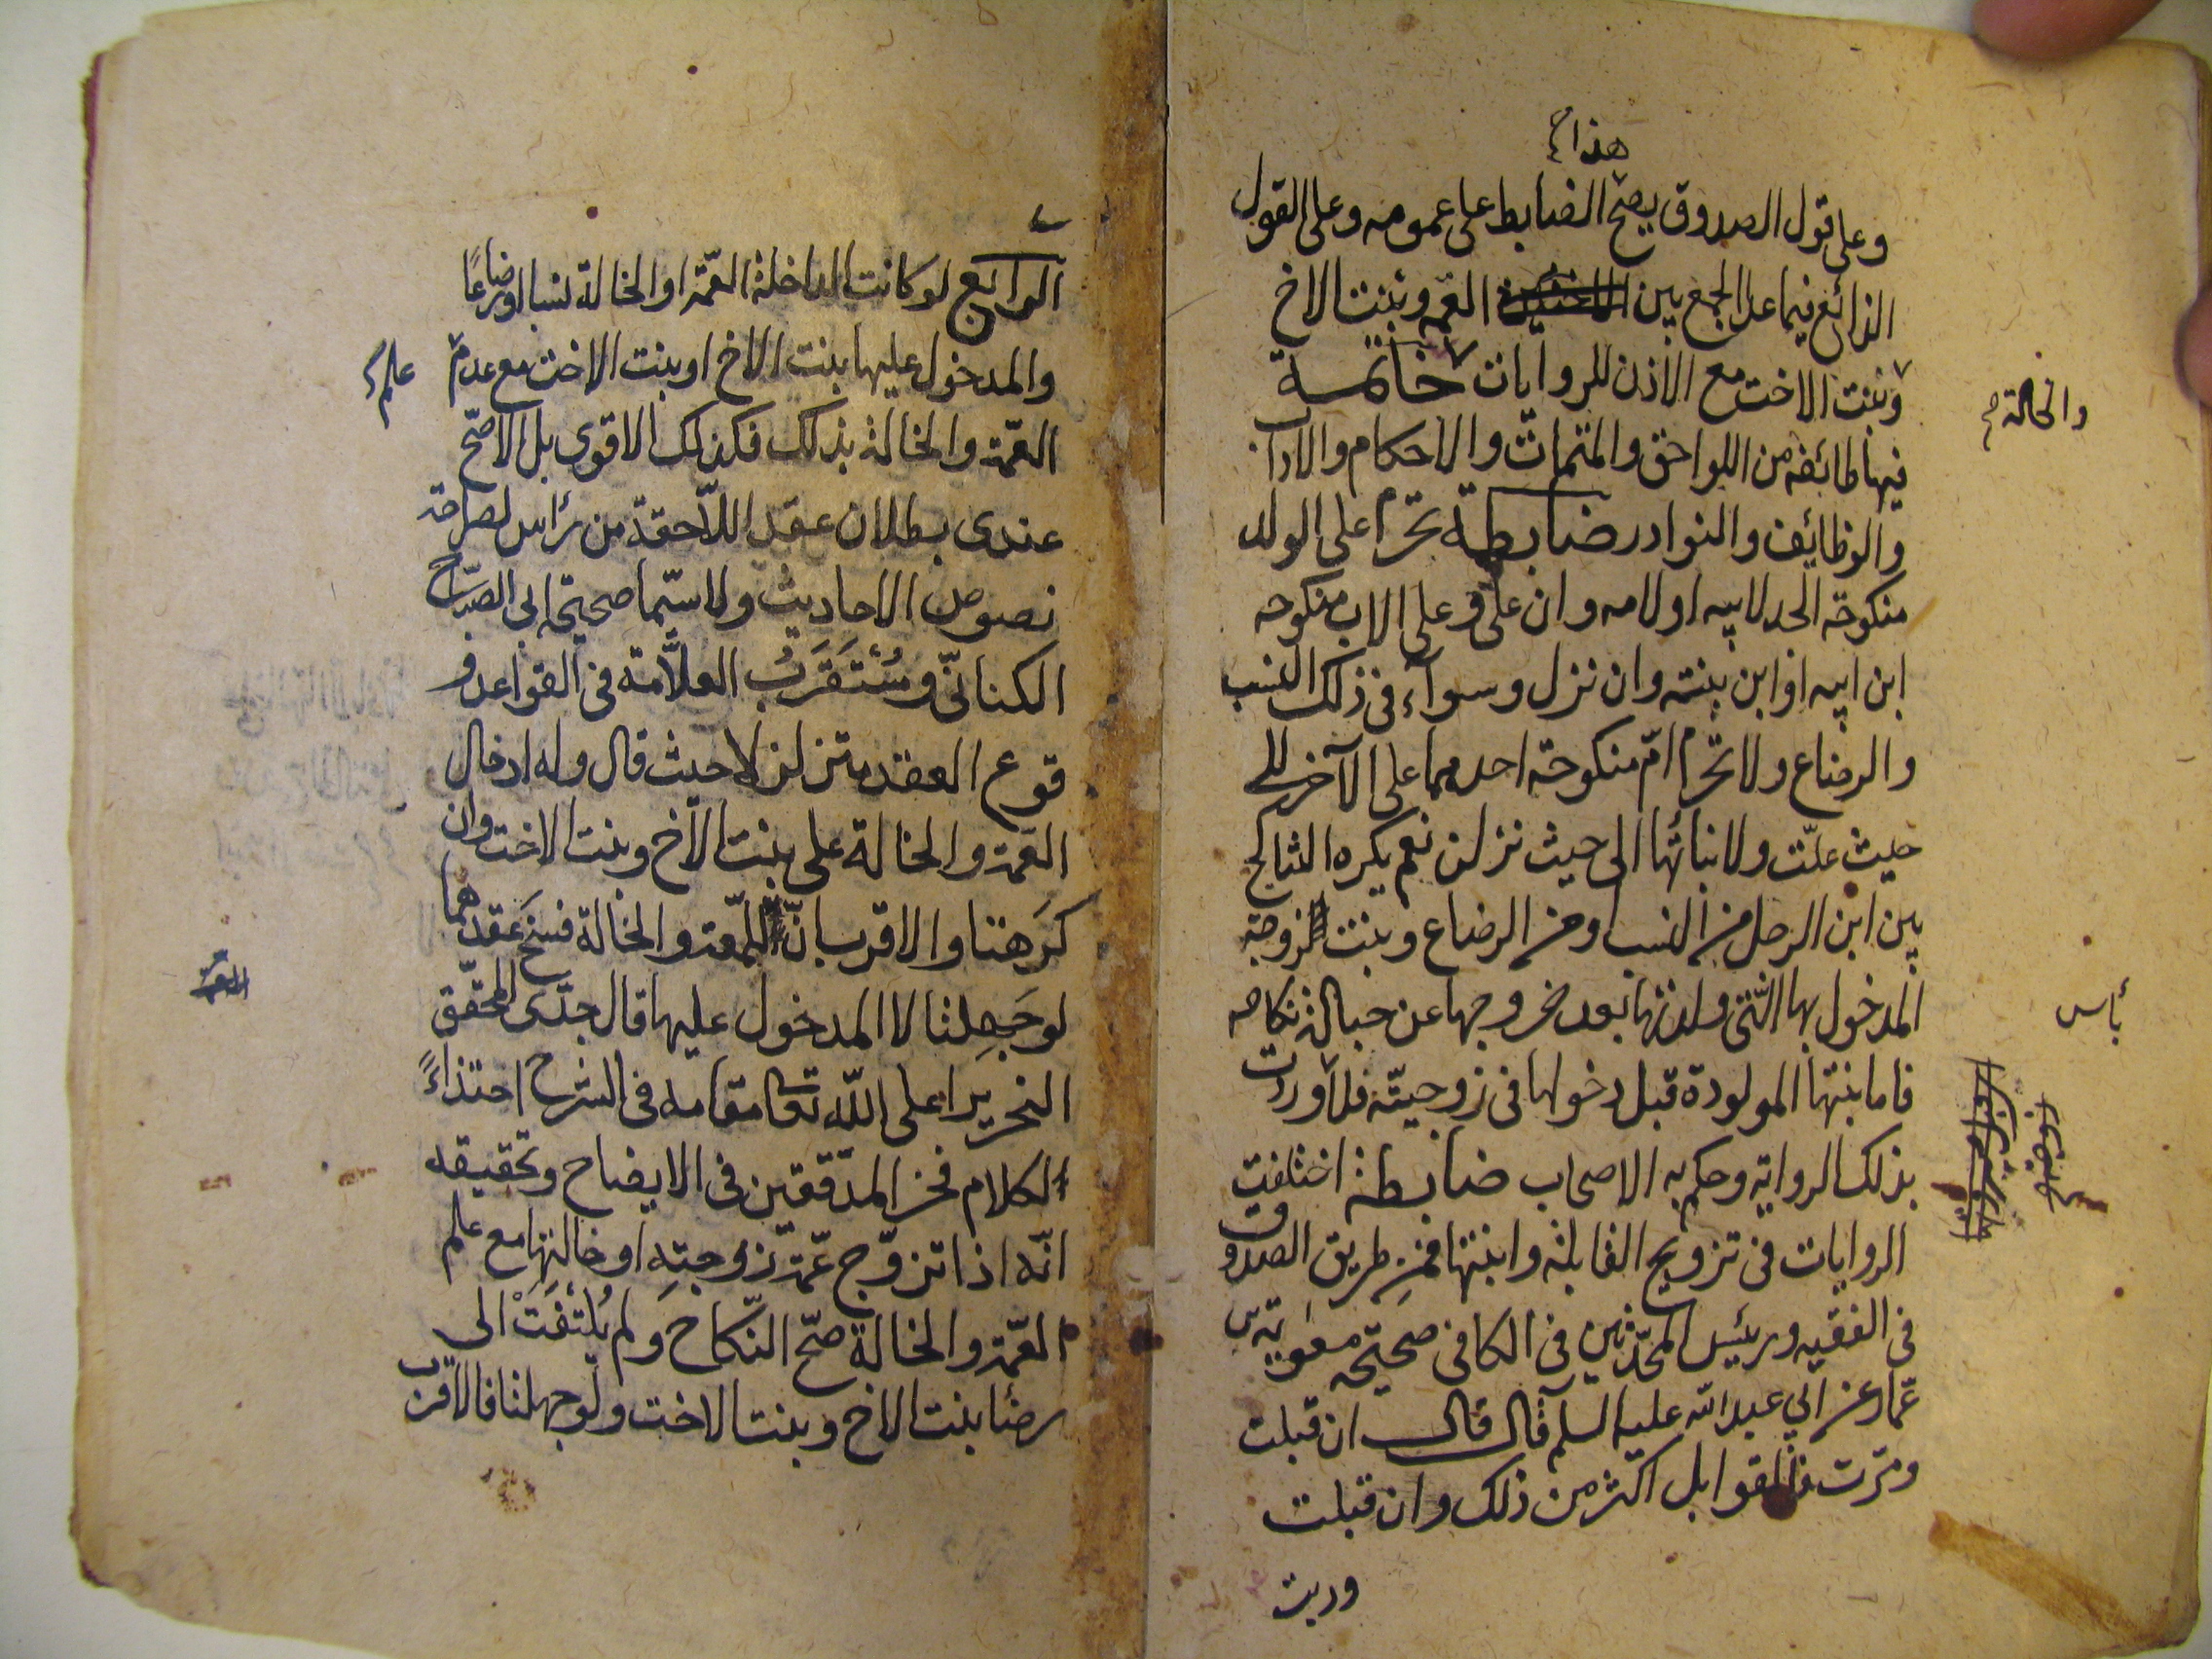 هذا
وعلى قول الصدوق يصح الضابط على عمومه وعلى القول
الذائع فيما عدا الجمع بين العمة وبنت الاخ
والخالة
وبنت الاخت مع الاذن للروايات خاتمة
فيها طائفة من اللواحق والمتممات والاحكام والاداب
والوظايف والنوادر ضابطة تحرم على الولد
منكوحة الجد لابيه او لامه وان علا وعلى الاب منكوحة
ابن ابيه او ابن بنته وان نزل وسواء في ذلك النسب
والرضاع ولا تحرم ام منكوحة احدهما على الآخر الى
حيث علت ولا بناتها الى حيث نزلن نعم يكره التناكح
بين ابن الرجل من النسب او من الرضاع وبنت زوجة
المدخول بها التي ولدتها بعد خروجها عن حبالة نكاحه
فاما بنتها المولودة قبل دخولها في زوجيته فلا وردت
بأس
بذلك الرواية وحكم به الاصحاب ضابطة اختلفت
الروايات في تزويج القابلة وابنتها فمن طريق الصدوق
في الفقيه ورئيس المحدثين في الكافي صحيحة معوية بن
عمار عن ابي عبد الله عليه السلم قال قال ان قبلت
ومرت فالقوابل اكثر من ذلك وان قبلت
وربت
الرابع لو كانت الداخلة العمة او الخالة نسبا او رضاعًا
والمدخول عليها بنت الاخ او بنت الاخت مع عدم
علم
العمة والخالة بذلك فكذلك الاقوى بل الاصح
عندى بطلان عقد اللاحقة من رأس لصراحة
نصوص الاحاديث ولا سيما صحيحة ابى الصباح
الكنانى ومُسْتَقْرَبُ العلامة في القواعد و
قوع العقد متزلزلا حيث قال وله ادخال
العمة والخالة على بنت الاخ وبنت الاخت وان
كرهتا والاقرب ان للعمة والخالة فسخ عقدهما
العمة
لو جهلتا لا المدخول عليها قال جدى المحقق
النحرير اعلى الله تعا مقامه في الشرح احتذاءً
لكلام فخر المدققين في الايضاح وتحقيقه
انه اذا تزوج عمة زوجته او خالتها مع علم
العمة والخالة صح النكاح ولم يُلتَفَتْ الى
رضا بنت الاخ وبنت الاخت ولو جهلتا فالاقرب